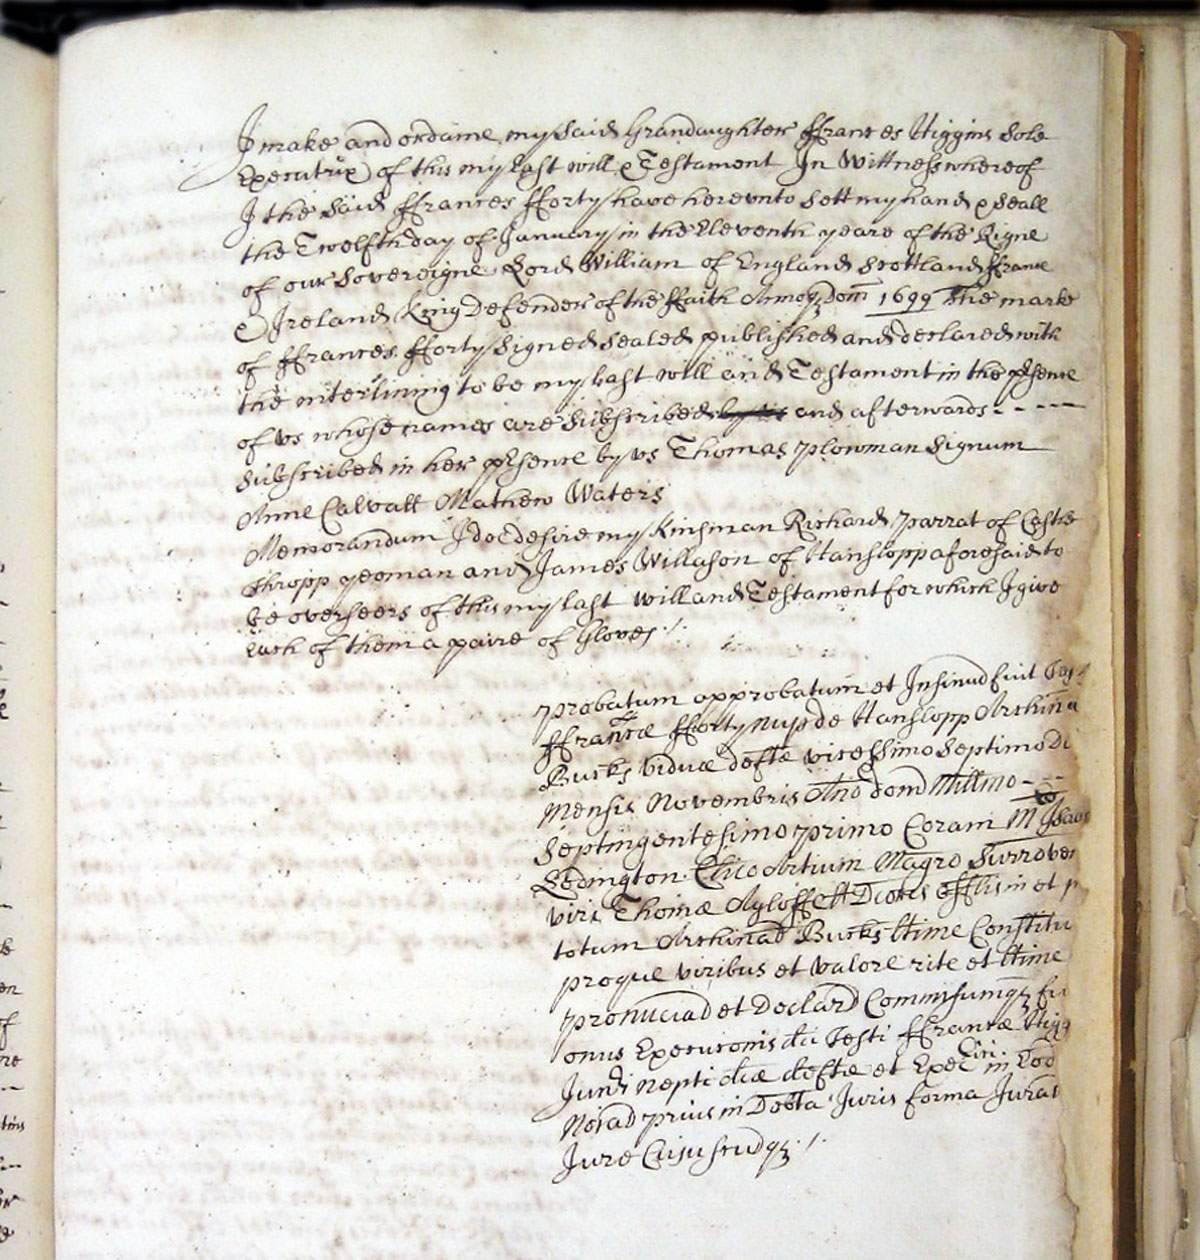 I make and ordaine my said Grandaughter ffrances Higgins Sole
Executrix of this my last will & Testament In Wittnesswhereof
I the said ffrances fforty have herevnto Sett my hand & Seall
the Twelfth day of January in the Eleventh yeare of the Rigne
of our Sovereigne Lord William of England Scottland ffrance
& Ireland King Defender of the ffaith Annoqz dom 1699 The marke
of ffrances fforty Signed Sealed published and declared with
the interlining to be my last will and Testament in the pesence
of vs whose names are Subscribed and afterwards - - - -
Subscribed in her pesence by vs Thomas Plowman Signum
Anne Calvall Mathew Waters
Memorandum I doe desire my Kinsman Richard Parrat of Castle
thropp yeoman and James Willason of Hanslopp aforesaid to
be overseers of this my last will and Testament for which I give
Each of them a paire of Gloves
Probatum approbatum et Insinud fuit
ffrancæ fforty nup de Hanslopp Archina
Bucks viduæ defte vicessimo Septimo di
Mensis Novembris Ano dom Millmo - - -
Septingentesimo primo Coram M Isaac
Ledington Clico Artium Magro Surrover
viri Thomæ Ayloffe ll Dcoris Offlis in et p
totum Archinad Bucks ltime Constitu
proque viribus et valore rite et ltime
Pronuciad et Declard Commissumqz fu
onus Execuconis dci Testi ffrancæ Higg
Jundi nepti dcæ defte et Exec in Tod
Noiad prius in Debta Juris forma Jurat
Jure Cujuscudqz